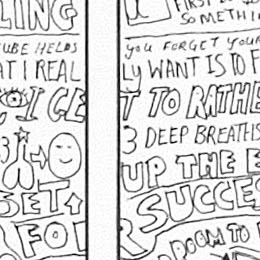 LING
UBE HELPS
AT I REAL
ICE
3
SET
FO
SOMETHI
you FORGET YOUR
LY WANT IS TO F
T TO RATHE
3 DEEP BREATHS
UP THE E
SUCCES
ROOM TO